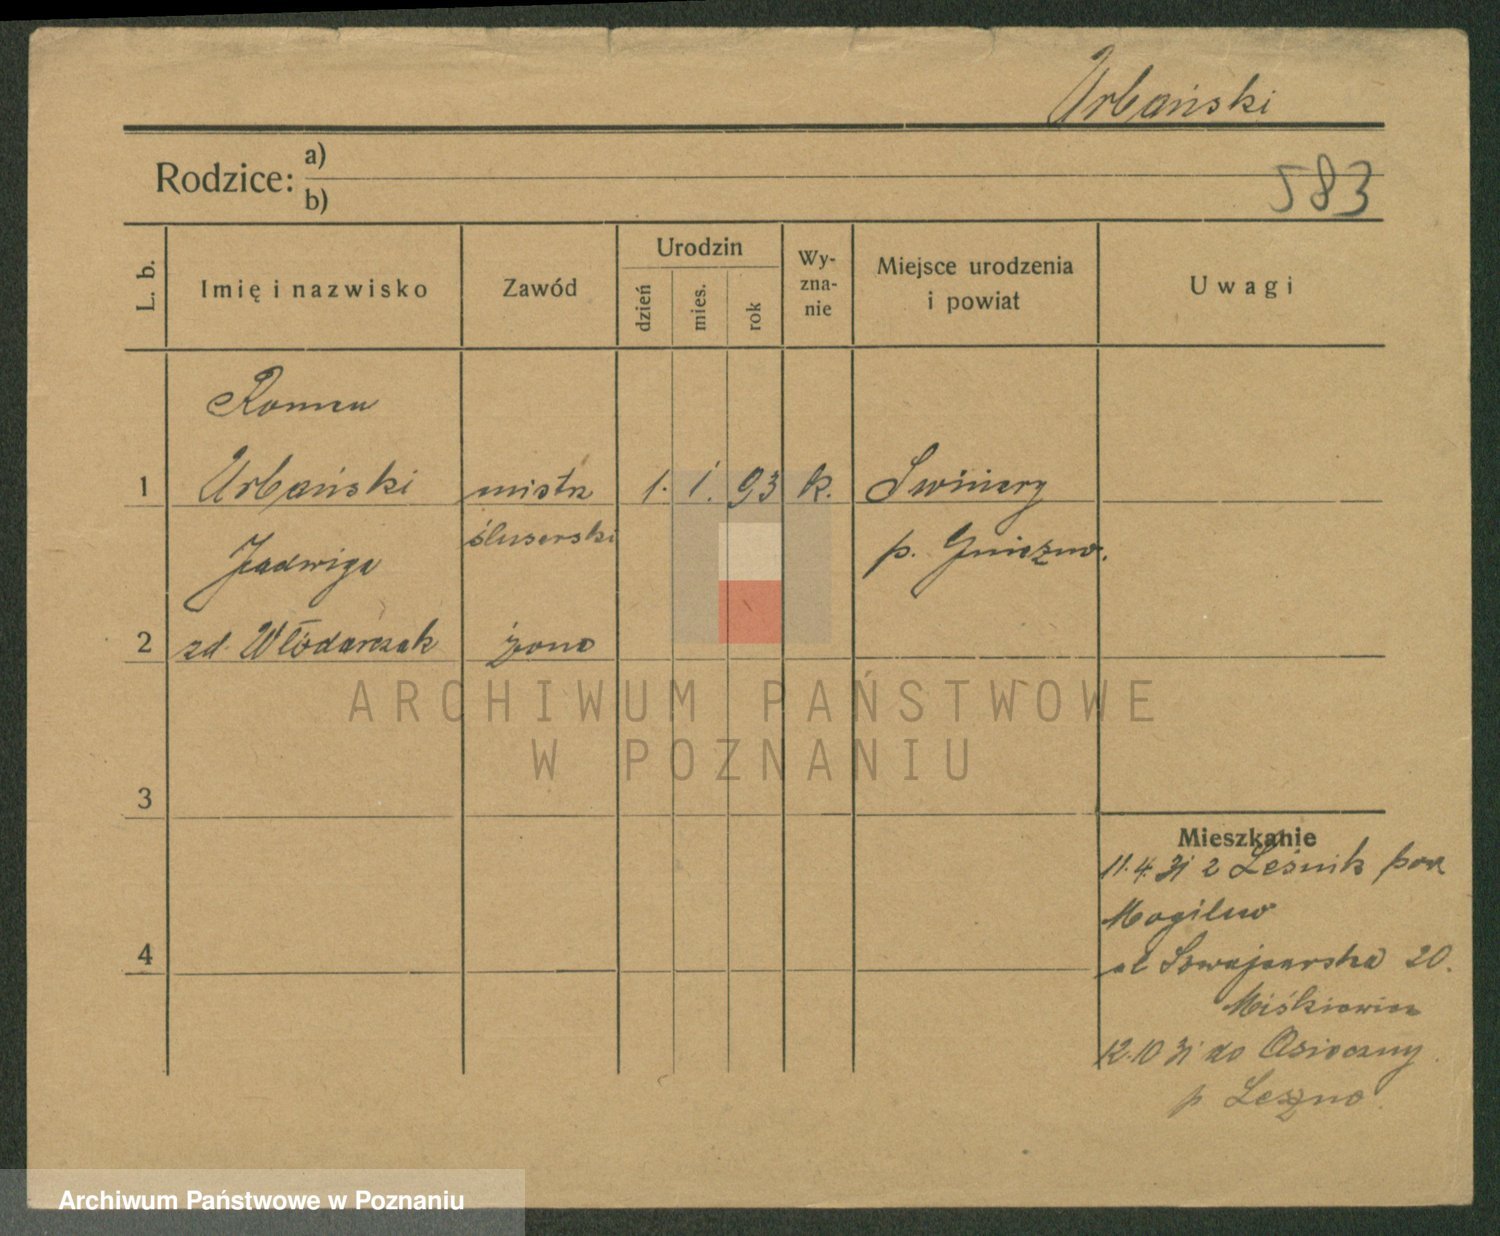 Urbański
Rodzice: a)
b)
583
L. b.
Imię i nazwisko
Zawód
Urodzin
dzień
mies.
rok
Wy-
zna-
nie
Miejsce urodzenia
i powiat
Uwagi
Roman
1 Urbański mistrz 1. 1. 93 k.
ślusarski p. Gniezno.
Jadwiga
2 zd. Włódarczak żona
ARCHIWUM PAŃSTWOWE
W POZNANIU
3
4
Mieszkanie
11.4.31 z Leśnik pow
Mogilno
ul Szwajcarska 20.
Miśkiewicz
12.10 31 do Osieczny
p Leszno.
Archiwum Państwowe w Poznaniu